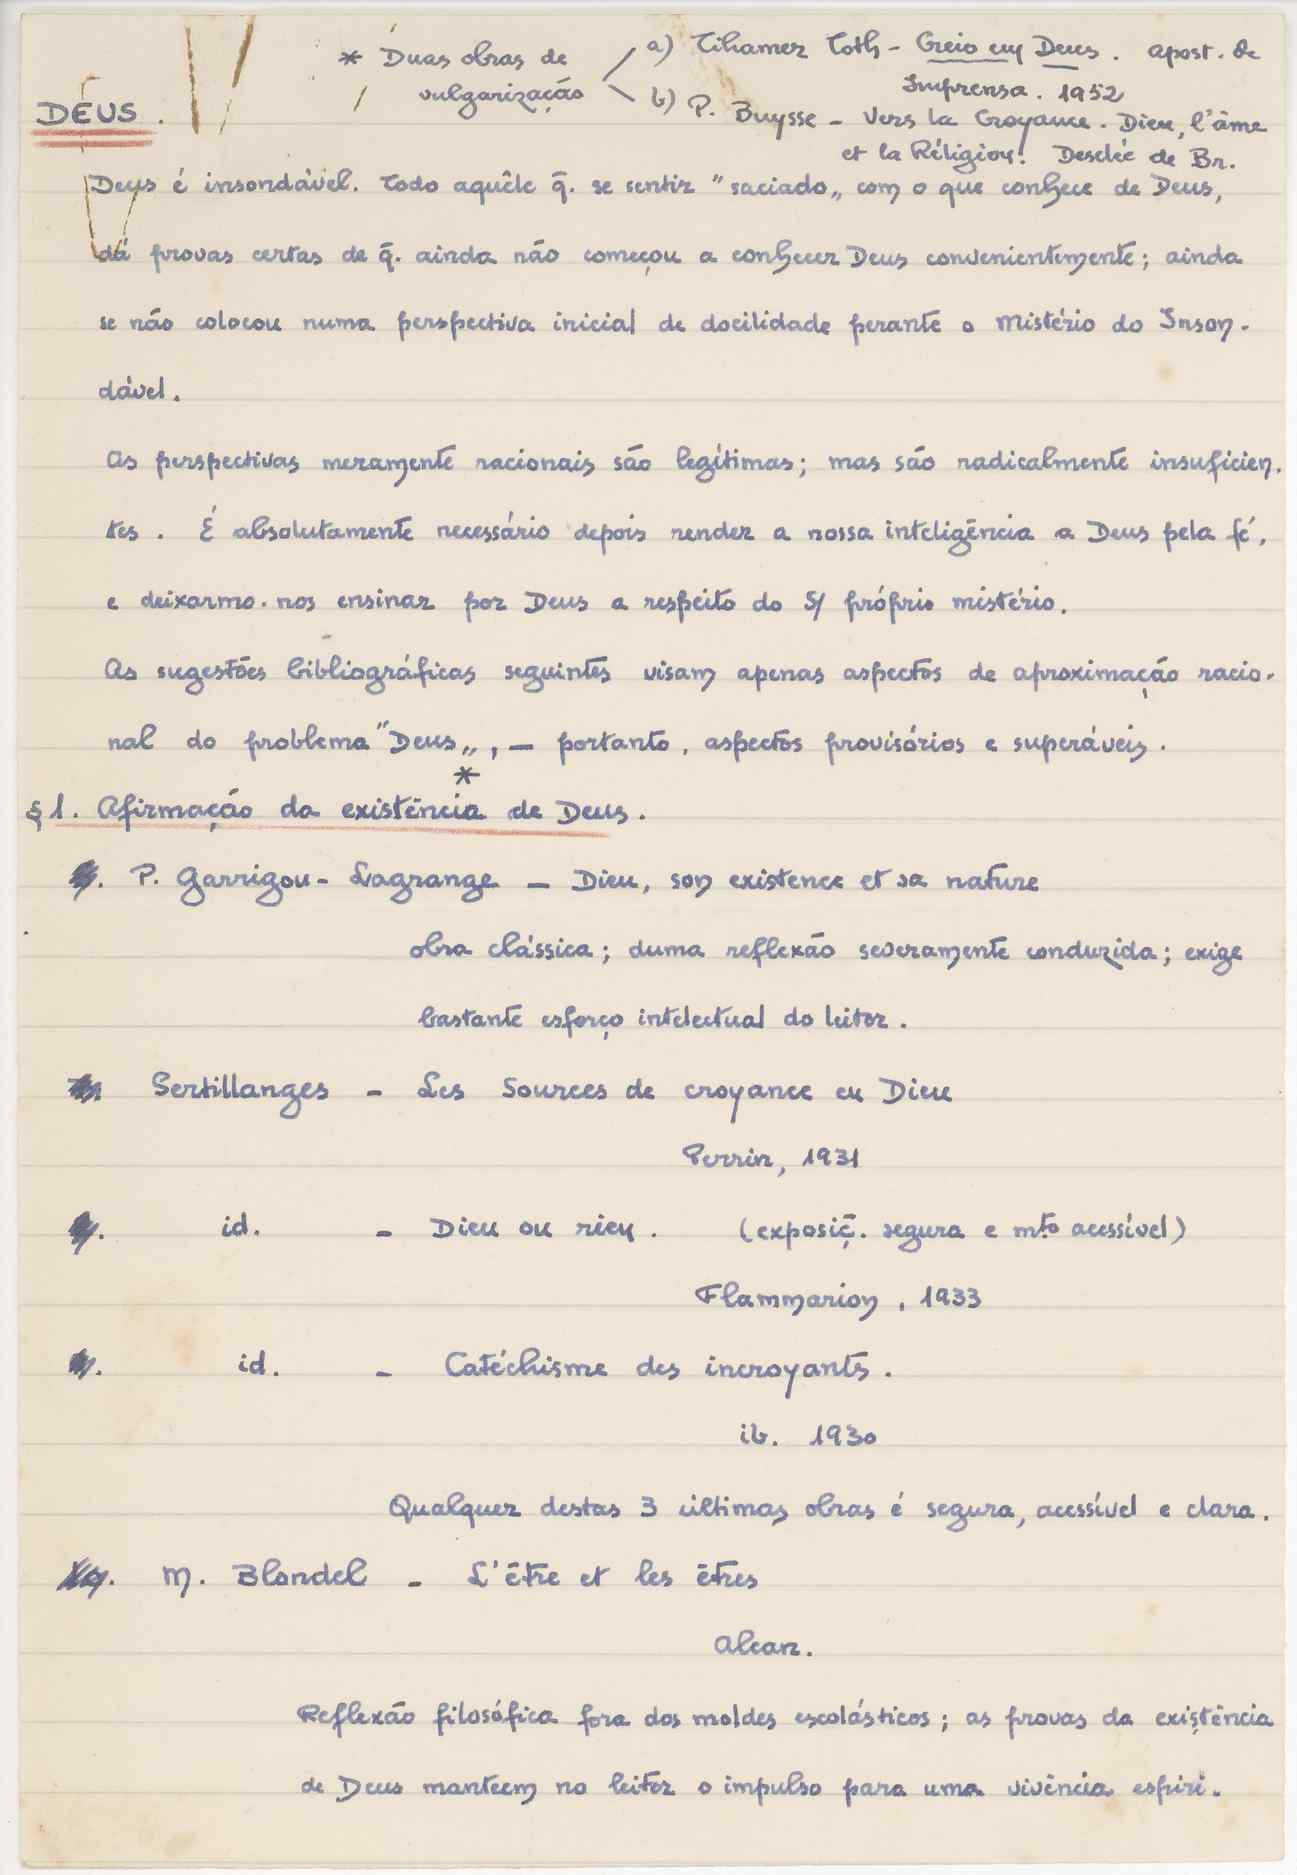 * Duas obras de vulgarização
a) Tihamer Toth - Creio em Deus. apost. da
Imprensa. 1952
b) P. Buysse - Vers la Croyance. Dieu, l'âme
et la Réligion! Desclée de Br.
DEUS.
Deus é insondável. Todo aquêle q̃. se sentir "saciado„ com o que conhece de Deus,
dá provas certas de q̃. ainda não começou a conhecer Deus convenientemente; ainda
se não colocou numa perspectiva inicial de docilidade perante o Mistério do Inson-
dável.
As perspectivas meramente racionais são legítimas; mas são radicalmente insuficien-
tes. É absolutamente necessário depois render a nossa inteligência a Deus pela fé,
e deixarmo-nos ensinar por Deus a respeito do S/ próprio mistério.
As sugestões bibliográficas seguintes visam apenas aspectos de aproximação racio-
nal do problema "Deus„, - portanto, aspectos provisórios e superáveis.
§ 1. Afirmação da existência * de Deus.
P. Garrigou-Lagrange - Dieu, son existence et sa nature
obra clássica; duma reflexão severamente conduzida; exige
bastante esforço intelectual do leitor.
Sertillanges - Les Sources de croyance en Dieu
Perrin, 1931
id. - Dieu ou rien. (exposiç̃. segura e mto acessível)
Flammarion, 1933
id. - Catéchisme des incroyants.
ib. 1930
Qualquer destas 3 últimas obras é segura, acessível e clara.
M. Blondel - L'être et les êtres
Alcan.
Reflexão filosófica fora dos moldes escolásticos; as provas da existência
de Deus manteem no leitor o impulso para uma vivência espiri-